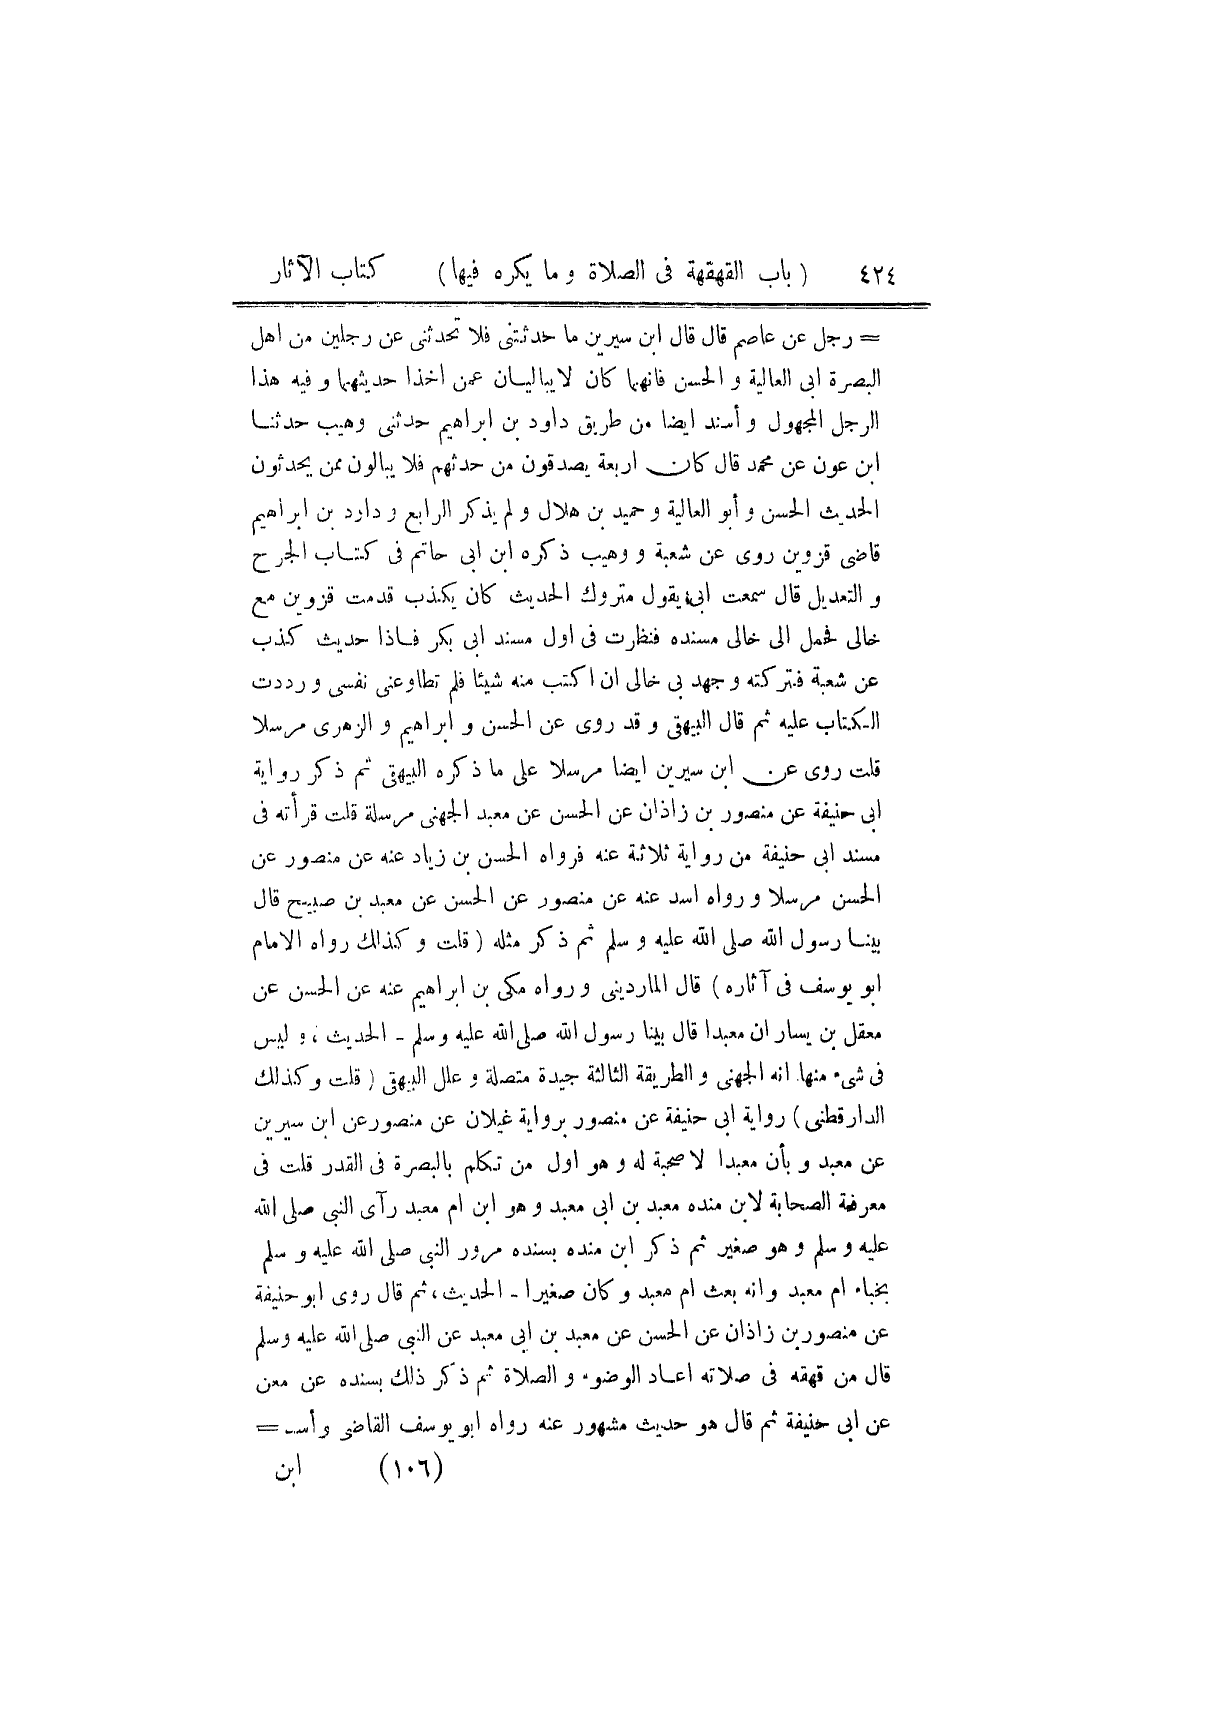 ٤٢٤ ( باب القهقهة فى الصلاة و ما يكره فيها ) كتاب الآثار
= رجل عن عاصم قال قال ابن سيرين ما حدثتنى فلا تحدثنى عن رجلين من اهل
البصرة ابى العالية و الحسن فانهما كان لا يباليــان عمن اخذا حديثهما و فيه هذا
الرجل المجهول و أسند ايضا من طريق داود بن ابراهيم حدثنى وهيب حدثنــا
ابن عون عن محمد قال كان اربعة يصدقون من حدثهم فلا يبالون ممن يحدثون
الحديث الحسن و أبو العالية و حميد بن هلال و لم يذكر الرابع و دارد بن ابراهيم
قاضى قزوين روى عن شعبة و وهيب ذكره ابن ابى حاتم فى كتــاب الجرح
و التعديل قال سمعت ابى يقول متروك الحديث كان يكذب قدمت قزوين مع
خالى فحمل الى خالى مسنده فنظرت فى اول مسند ابى بكر فــاذا حديث كذب
عن شعبة فتركته و جهد بى خالى ان اكتب منه شيئا فلم تطاوعنى نفسى و رددت
الكتاب عليه ثم قال البيهقى و قد روى عن الحسن و ابراهيم و الزهرى مرسلا
قلت روى عن ابن سيرين ايضا مرسلا على ما ذكره البيهقى ثم ذكر رواية
ابى حنيفة عن منصور بن زاذان عن الحسن عن معبد الجهنى مرسلة قلت قرأته فى
مسند ابى حنيفة من رواية ثلاثة عنه فرواه الحسن بن زياد عنه عن منصور عن
الحسن مرسلا و رواه اسد عنه عن منصور عن الحسن عن معبد بن صبيح قال
بينــا رسول الله صلى الله عليه و سلم ثم ذكر مثله ( قلت و كذلك رواه الامام
ابو يوسف فى آثاره ) قال الماردينى و رواه مكى بن ابراهيم عنه عن الحسن عن
معقل بن يسار ان معبدا قال بينا رسول الله صلى الله عليه و سلم ـ الحديث ، و ليس
فى شىء منها انه الجهنى و الطريقة الثالثة جيدة متصلة و علل البيهقى ( قلت و كذلك
الدارقطنى ) رواية ابى حنيفة عن منصور برواية غيلان عن منصور عن ابن سيرين
عن معبد و بأن معبدا لا صحبة له و هو اول من تكلم بالبصرة فى القدر قلت فى
معرفة الصحابة لابن منده معبد بن ابى معبد و هو ابن ام معبد رآى النبى صلى الله
عليه و سلم و هو صغير ثم ذكر ابن منده بسنده مرور النبى صلى الله عليه و سلم
بخباء ام معبد و انه بعث ام معبد و كان صغيرا ـ الحديث ، ثم قال روى ابو حنيفة
عن منصور بن زاذان عن الحسن عن معبد بن ابى معبد عن النبى صلى الله عليه وسلم
قال من قهقه فى صلاته اعــاد الوضوء و الصلاة ثم ذكر ذلك بسنده عن معن
عن ابى حنيفة ثم قال هو حديث مشهور عنه رواه ابو يوسف القاضى و أسد =
(١٠٦) ابن